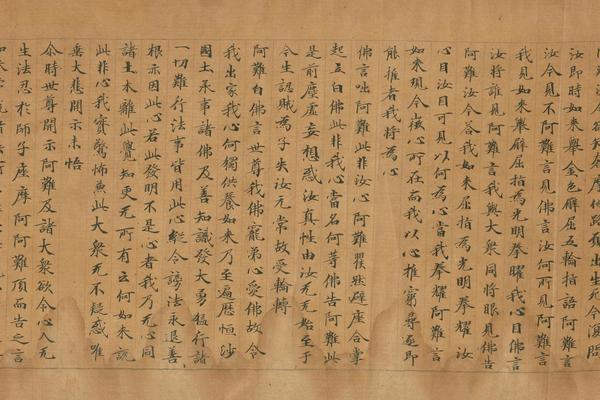 知奢摩他路願出生死今復問
汝即時如來舉金色臂屈五輪指語阿難言
汝今見不阿難言見佛言汝何所見阿難言
我見如來舉臂屈指為光明拳曜我心目佛言
汝將誰見阿難言我與大衆同將眼見佛告
阿難汝今荅我如來屈指為光明拳耀汝
心目汝目可見以何為心當我拳耀阿難言
如來現今徵心所在而我以心推窮尋逐即
能推者我將為心
佛言咄阿難此非汝心阿難矍然避座合掌
起立白佛此非我心當名何等佛告阿難此
是前塵虛妄想惑汝真性由汝无无始至于
今生認賊為子失汝元常故受輪轉
阿難白佛言世尊我佛寵弟心愛佛故令
我出家我心何獨供養如來乃至遍歷恒沙
國土承事諸佛及善知識發大勇猛行諸
一切難行法事皆用此心縱令謗法永退善
根亦因此心若此發明不是心者我乃无心同
諸土木離此覺知更无所有云何如來說
此非心我實驚怖兼此大衆无不疑惑唯
垂大悲開示未悟
尒時世尊開示阿難及諸大衆欲令心入无
生法忍於師子座摩阿阿難頂而告之言